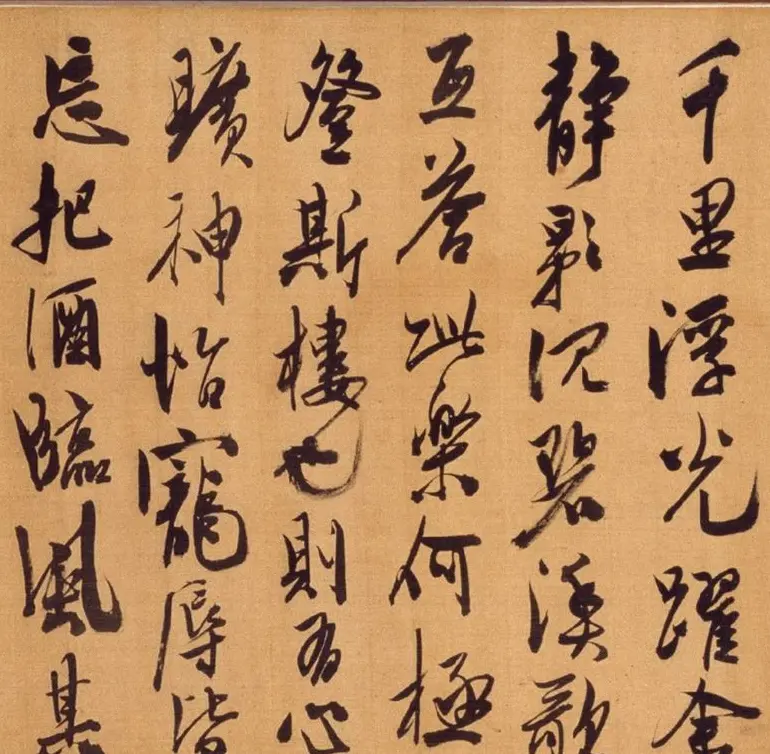 千里浮光躍金
静影沉碧漁歌
互答此樂何極
登斯樓也則有心
曠神怡寵辱皆
忘把酒臨風其